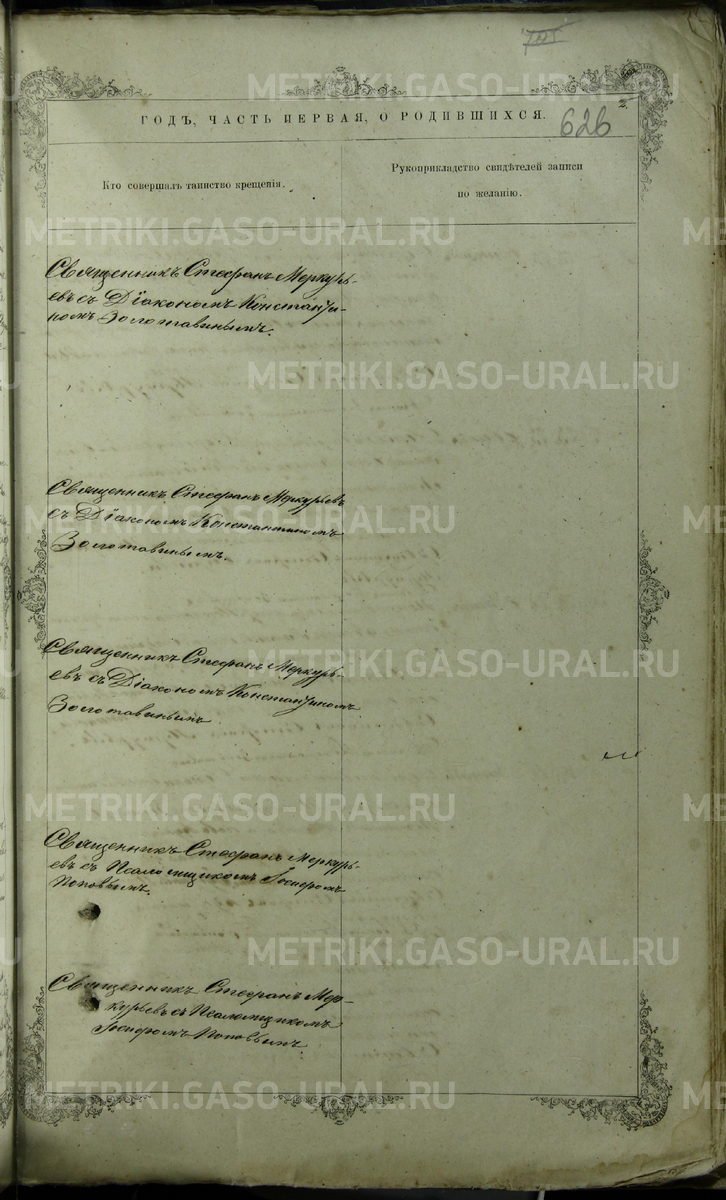 ГОДЪ, ЧАСТЬ ПЕРВАЯ, О РОДИВШИХСЯ.
626
2
Кто совершалъ таинство крещенія.
Рукоприкладство свидѣтелей записи
по желанію.
Священникъ Стефанъ Меркурь-
евъ съ Діакономъ Константи-
номъ Золотавинымъ.
Священникъ Стефанъ Меркурьевъ
съ Діакономъ Константиномъ
Золотавинымъ.
Священникъ Стефанъ Меркурь-
евъ съ Діакономъ Константиномъ
Золотавинымъ
Священникъ Стефанъ Меркурь-
евъ съ Псаломщикомъ Іосифомъ
Поповымъ.
Священникъ Стефанъ Мер-
курьевъ съ Псаломщикомъ
Іосифомъ Поповымъ.
METRIKI.GASO-URAL.RU